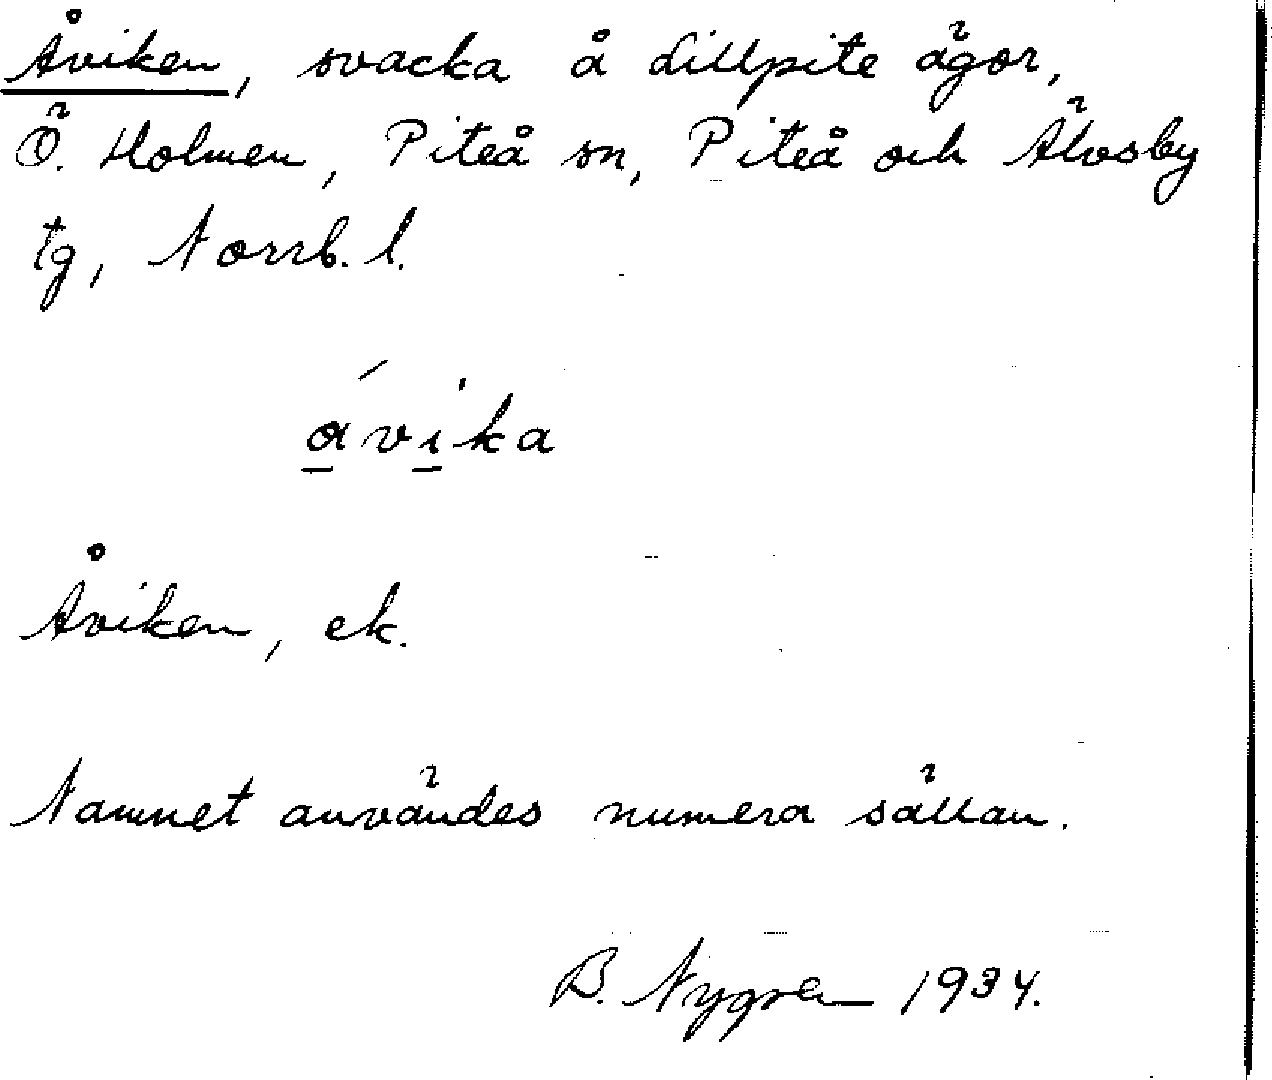 Åviken, svacka å Lillpite ägor,
Ö. Holmen, Piteå sn, Piteå och Älvsby
tg, Norrb. l.
a\u0301vika
Åviken, ek.
Namnet användes numera sällan.
B. Nygren 1934.